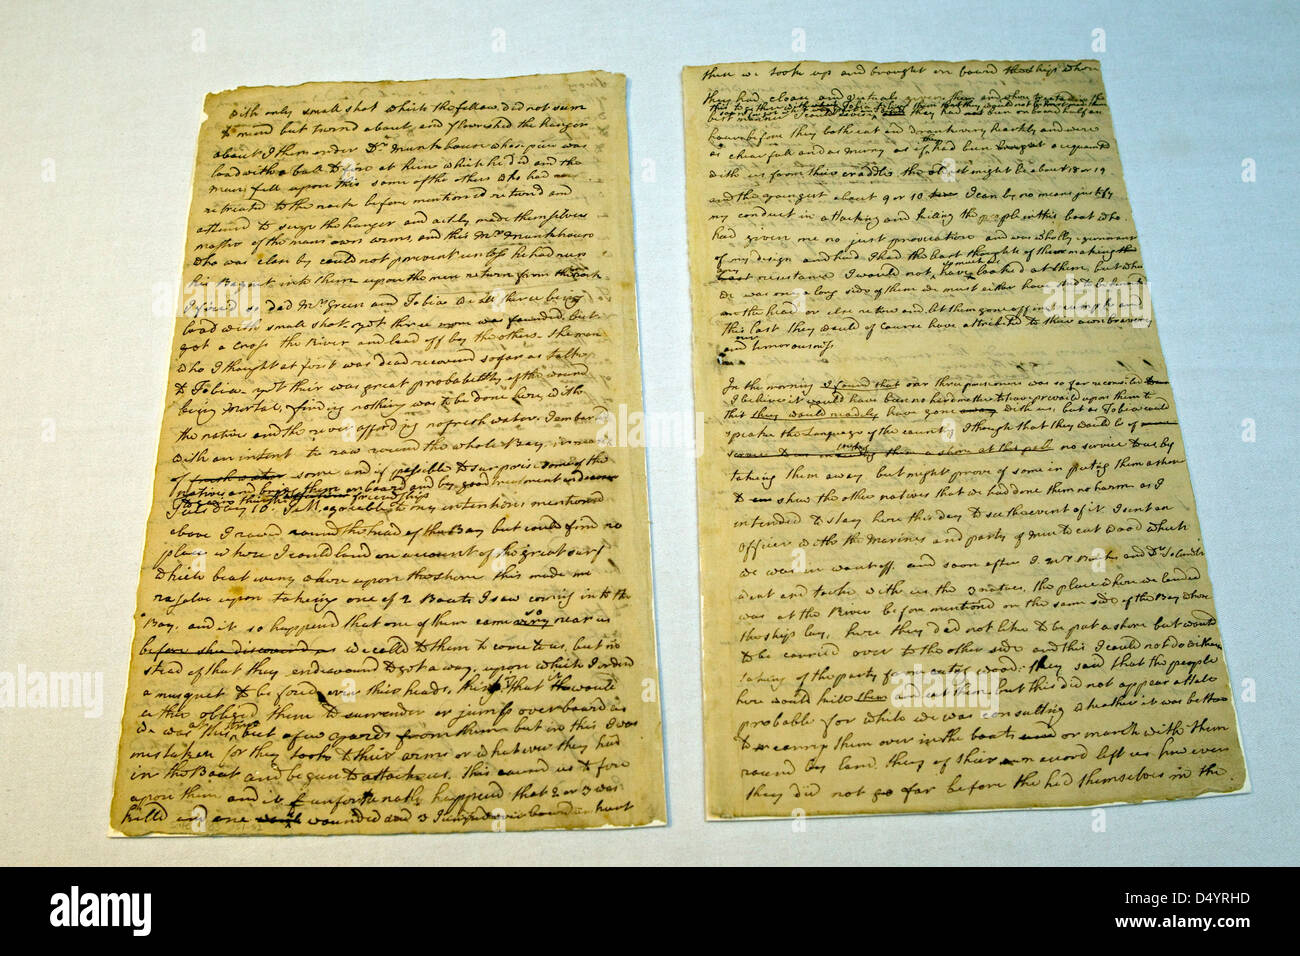 with only small shot which the fellow did not seem
to mind but turnd about and flourished the hanger
about I then order'd Dr Munkhouse whose piece was
load with a ball to fire at him which he did and the
man fell upon this some of the others who had
retreated to the rock before mentioned returnd and
attempd to seize the hanger and
master of the mans own arms, and this Mr Munkhouse
who was close by could not prevent unless he had run
his Bayonet into them upon the men return from the rock
I fired so did Mr Green and Tobia we all three being
load with small shot, yet three was wounded, but
got a cross the River and lead off by the others. the man
who I thought at first was dead recoverd so far as talk
to Tobia yet their was great probabillity of the wound
being mortal, finding nothing was to be done here with
the natives and the river affording no fresh water, I embarkd
with an intent to row round the whole Bay, in search
of fresh water some and if possible to surprise some of the
natives and bring them on board and by good treatment
friendship
Tuesday 10. In agreeable to my intentions mentioned
above I rowed round the head of the Bay but could find no
place where I could land on account of the great surf
which beat every where upon the shore this made me
resolve upon taking one of 2 Boats I saw coming into the
Bay, and it so happend that one of them came very so near us
before she discoverd us we calld to them to come to us, but in
stead of that they endeavourd to get a way, upon which I orderd
a musquet to be fired over their heads, thinking that this would
either obliged them to surrender or jump over board as
we was at this time but a few yards from them but in this I was
mistaken for they took to their arms or what ever they had
in the Boat and begun to attack us. this caused us to fire
upon them and unfortunatly happend that 2 or 3 was
killd and one wounded and 3 jumped over board
then we took up and brought on board the ship where
they had cloase and victuals given them and
best manner I could
hour before they both eat and drank very heartily and were
as chear full and as merry as if had been acquanted
with us from their craddles the oldest might be about 18 or 19
and the youngest about 9 or 10 I can by no means justify
my conduct in attacking and killing the people in this boat who
had given me no just provication and was wholly ignorant
of my design and had I had the least thought of their making the
least resistance I would not so much as have looked at them, but when
we was once a long side of them we must either have stud to be knockd
on the head or else retire and let them gone off in triumph and
this last they would of course have attributed to their own bravery
and our timorousness
In the morning I found that our three prisoners was so far reconciled
I believe it would have been no hard matter to have prevaild upon them to
that they would readily have gone away with us, but as Tobia could
speake the Language of the country I thought that they would be of
service to us in makeing them a shore at this place no service to us by
taking them away but might prove of some in puting them a shore
to shew the other natives that we had done them no harm as I
intended to stay here this day to see the event of it. I sent an
Officer with the Marines and party of men to cut Wood which
we was in want off, and soon after I Mr Banks and Dr Solander
went and took with us the 3 natives, the place where we landed
was at the River before mentioned on the same side of the Bay where
the ship lay, here they did not like to be put a shore but would
to be carried over to the other side and this I could not do without
taking of the party from cuting wood: they said that the people
here would kill them and eat them but this did not appear atall
probable for while we was consulting whether it was better
to carry them over in the boats or march with them
round by land they of their own accord left us how ever
they did not go far before the hid themselves in the